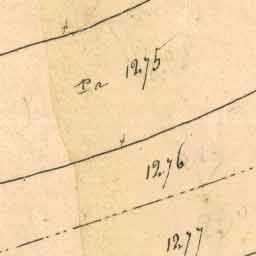 Pa 1275
1276
1277